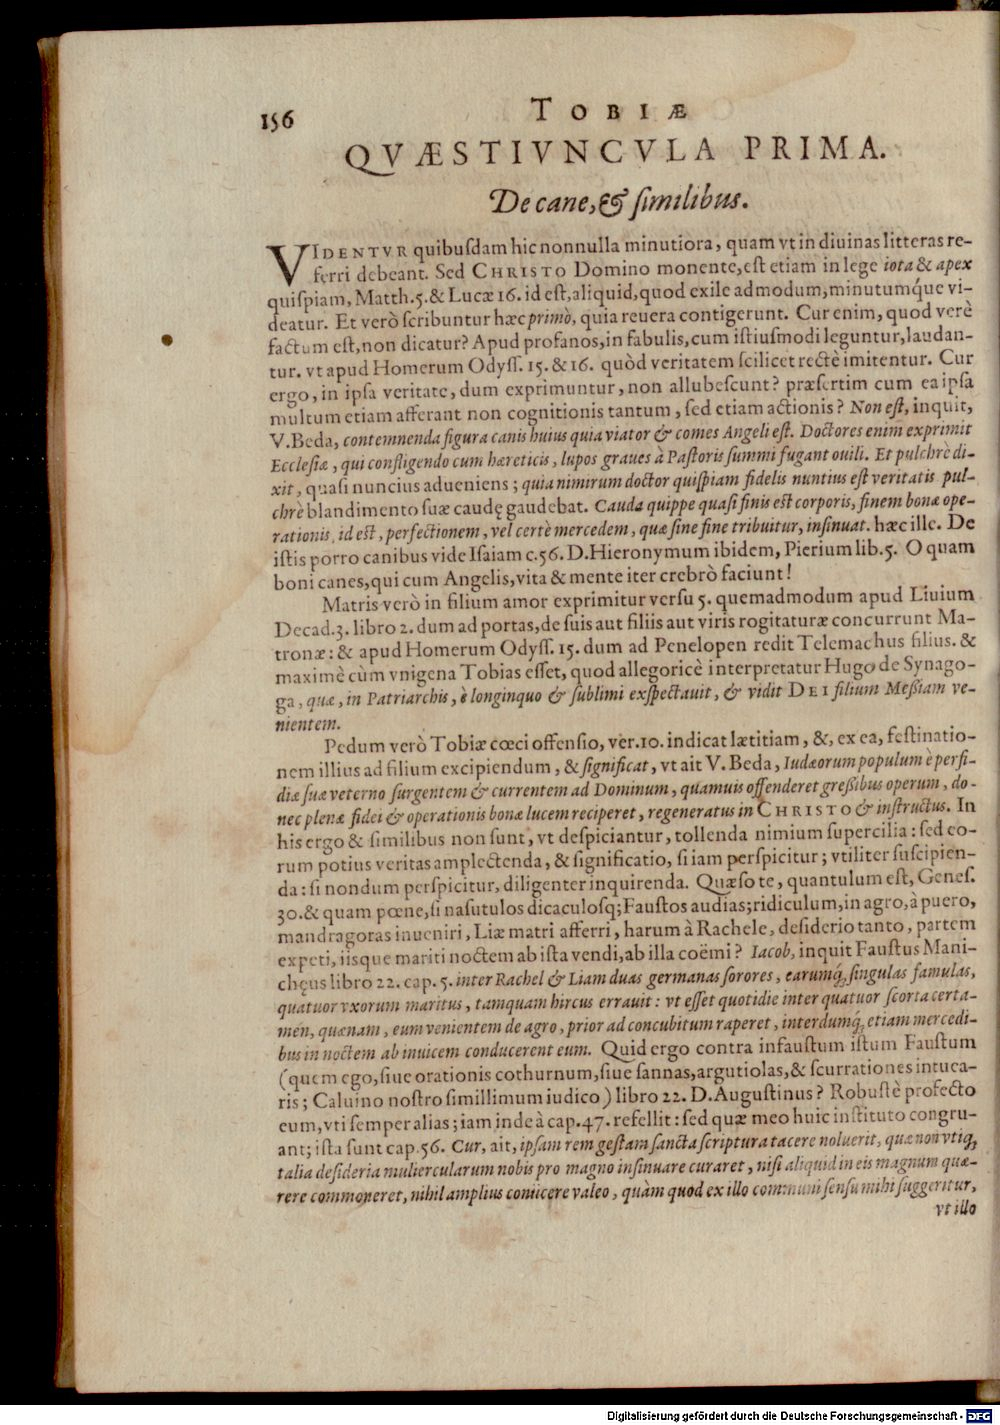 156
TOBIÆ
QVÆSTIVNCVLA PRIMA.
De cane, & similibus.
VIDENTVR quibusdam hic nonnulla minutiora, quam vt in diuinas litteras re-
ferri debeant. Sed CHRISTO Domino monente, est etiam in lege iota & apex
quispiam, Matth.5. & Lucæ 16. id est, aliquid, quod exile admodum, minutumq́ue vi-
deatur. Et verò scribuntur hæc primò, quia reuera contigerunt. Cur enim, quod verè
factum est, non dicatur? Apud profanos, in fabulis, cum istiusmodi leguntur, laudan-
tur. vt apud Homerum Odyss. 15. & 16. quòd veritatem scilicet rectè imitentur. Cur
ergo, in ipsa veritate, dum exprimuntur, non allubescunt? præsertim cum ea ipsa
multum etiam afferant non cognitionis tantum, sed etiam actionis? Non est, inquit,
V. Beda, contemnenda figura canis huius quia viator & comes Angeli est. Doctores enim exprimit
Ecclesiæ, qui confligendo cum hæreticis, lupos graues à Pastoris summi fugant ouili. Et pulchrè di-
xit, quasi nuncius adueniens; quia nimirum doctor quispiam fidelis nuntius est veritatis pul-
chrè blandimento suæ caudę gaudebat. Cauda quippe quasi finis est corporis, finem bonæ ope-
rationis, id est, perfectionem, vel certè mercedem, quæ sine fine tribuitur, insinuat. hæc ille. De
istis porro canibus vide Isaiam c.56. D. Hieronymum ibidem, Pierium lib.5. O quam
boni canes, qui cum Angelis, vita & mente iter crebrò faciunt!
Matris verò in filium amor exprimitur versu 5. quemadmodum apud Liuium
Decad.3. libro 2. dum ad portas, de suis aut filiis aut viris rogitaturæ concurrunt Ma-
tronæ: & apud Homerum Odyss. 15. dum ad Penelopen redit Telemachus filius. &
maximè cùm vnigena Tobias esset, quod allegoricè interpretatur Hugo de Synago-
ga, quæ, in Patriarchis, è longinquo & sublimi exspectauit, & vidit DEI filium Messiam ve-
nientem.
Pedum verò Tobiæ cœci offensio, ver.10. indicat lætitiam, &, ex ea, festinatio-
nem illius ad filium excipiendum, & significat, vt ait V. Beda, Iudæorum populum è perfi-
diæ suæ veterno surgentem & currentem ad Dominum, quamuis offenderet gressibus operum, do-
nec plenæ fidei & operationis bonæ lucem reciperet, regeneratus in CHRISTO & instructus. In
his ergo & similibus non sunt, vt despiciantur, tollenda nimium supercilia: sed eo-
rum potius veritas amplectenda, & significatio, si iam perspicitur; vtiliter suscipien-
da: si nondum perspicitur, diligenter inquirenda. Quæso te, quantulum est, Genes.
30. & quam pœne, si nasutulos dicaculosq; Faustos audias; ridiculum, in agro, à puero,
mandragoras inueniri, Liæ matri afferri, harum à Rachele, desiderio tanto, partem
expeti, iisque mariti noctem ab ista vendi, ab illa coëmi? Iacob, inquit Faustus Mani-
chęus libro 22. cap. 5. inter Rachel & Liam duas germanas sorores, earumq́; singulas famulas,
quatuor vxorum maritus, tamquam hircus errauit: vt esset quotidie inter quatuor scorta certa-
men, quænam, eum venientem de agro, prior ad concubitum raperet, interdumq́; etiam mercedi-
bus in noctem ab inuicem conducerent eum. Quid ergo contra infaustum istum Faustum
(quem ego, siue orationis cothurnum, siue sannas, argutiolas, & scurrationes intuea-
ris; Caluino nostro simillimum iudico) libro 22. D. Augustinus? Robustè profecto
eum, vti semper alias; iam inde à cap. 47. refellit: sed quæ meo huic instituto congru-
ant; ista sunt cap. 56. Cur, ait, ipsam rem gestam sancta scriptura tacere noluerit, quæ non vtiq;
talia desideria muliercularum nobis pro magno insinuare curaret, nisi aliquid in eis magnum quæ-
rere commoneret, nihil amplius coniicere valeo, quàm quod ex illo communi sensu mihi suggeritur,
vt illo
Digitalisierung gefördert durch die Deutsche Forschungsgemeinschaft - DFG